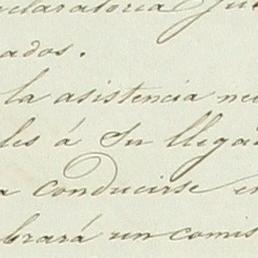 claratoria
ados.
la asistencia ne
les á Su llega
a conducirse en
brará un comis